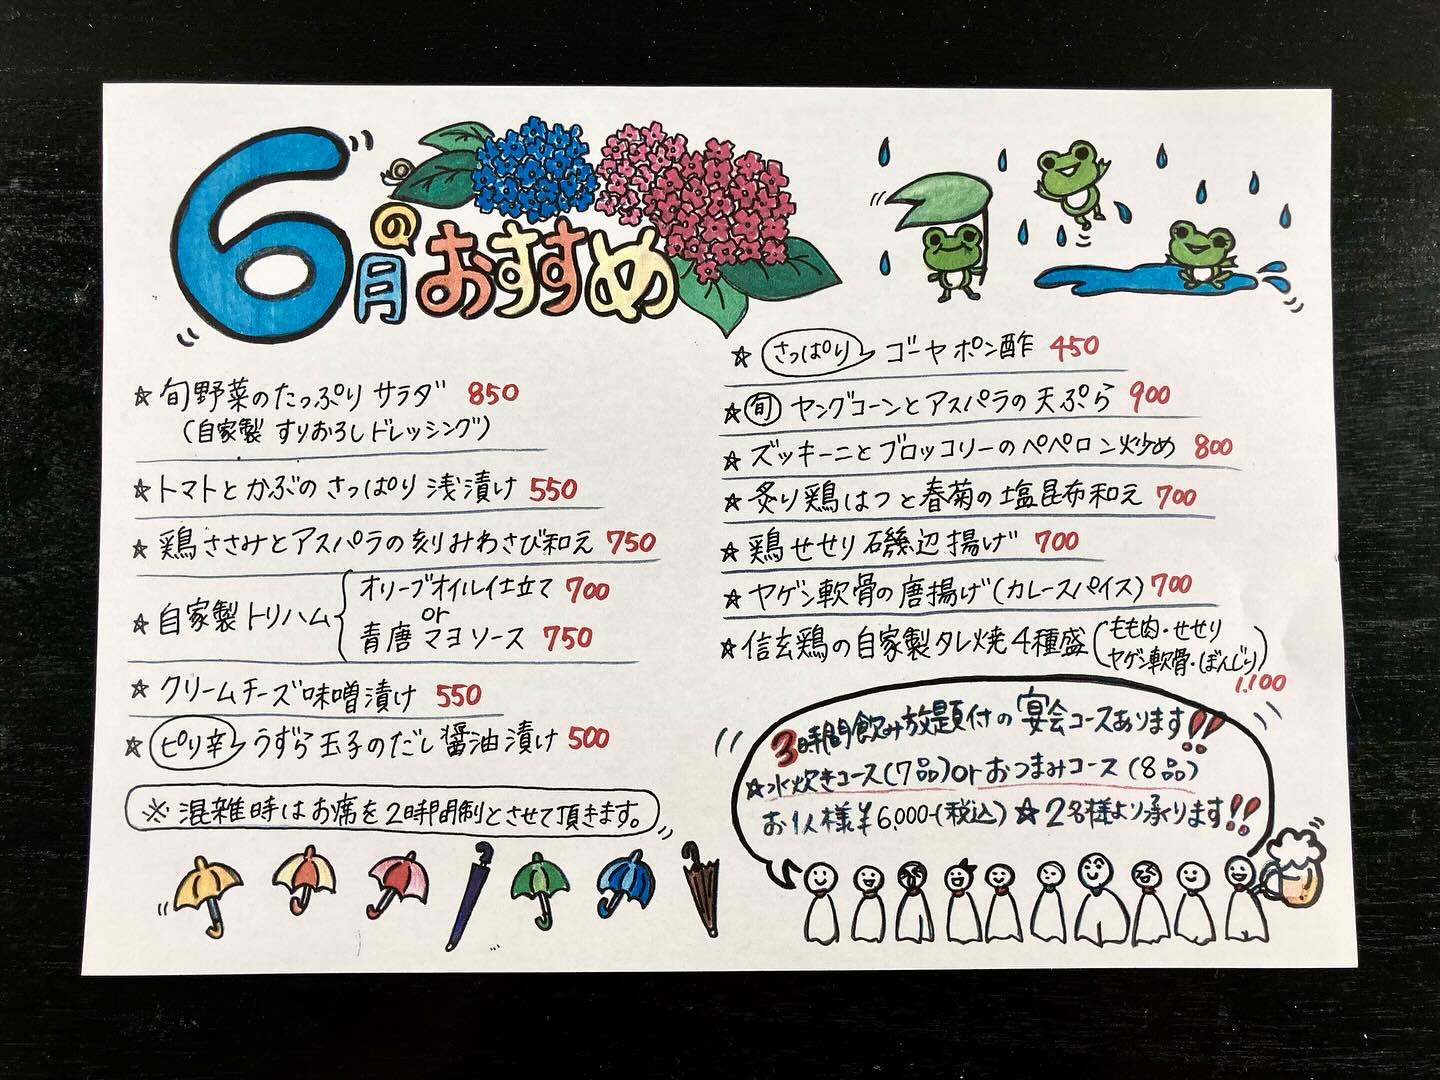 6月のおすすめ
☆ 旬野菜のたっぷりサラダ 850
(自家製 すりおろしドレッシング)
☆ トマトとかぶのさっぱり浅漬け 550
☆ 鶏ささみとアスパラの刻みわさび和え 750
☆ 自家製トリハム
オリーブオイル仕立て 700
or
青唐マヨソース 750
☆ クリームチーズ味噌漬け 550
☆ ピリ辛 うずら玉子のだし醤油漬け 500
※ 混雑時はお席を2時間制とさせて頂きます。
☆ さっぱり ゴーヤポン酢 450
☆ 旬 ヤングコーンとアスパラの天ぷら 900
☆ ズッキーニとブロッコリーのペペロン炒め 800
☆ 炙り鶏はつと春菊の塩昆布和え 700
☆ 鶏せせり磯辺揚げ 700
☆ ヤゲン軟骨の唐揚げ(カレースパイス) 700
☆ 信玄鶏の自家製タレ焼4種盛
(もも肉・せせり
ヤゲン軟骨・ぼんじり)
1,100
3時間飲み放題付の宴会コースあります!!
☆水炊きコース(7品)orおつまみコース(8品)
お1人様¥6,000-(税込)☆2名様より承ります!!